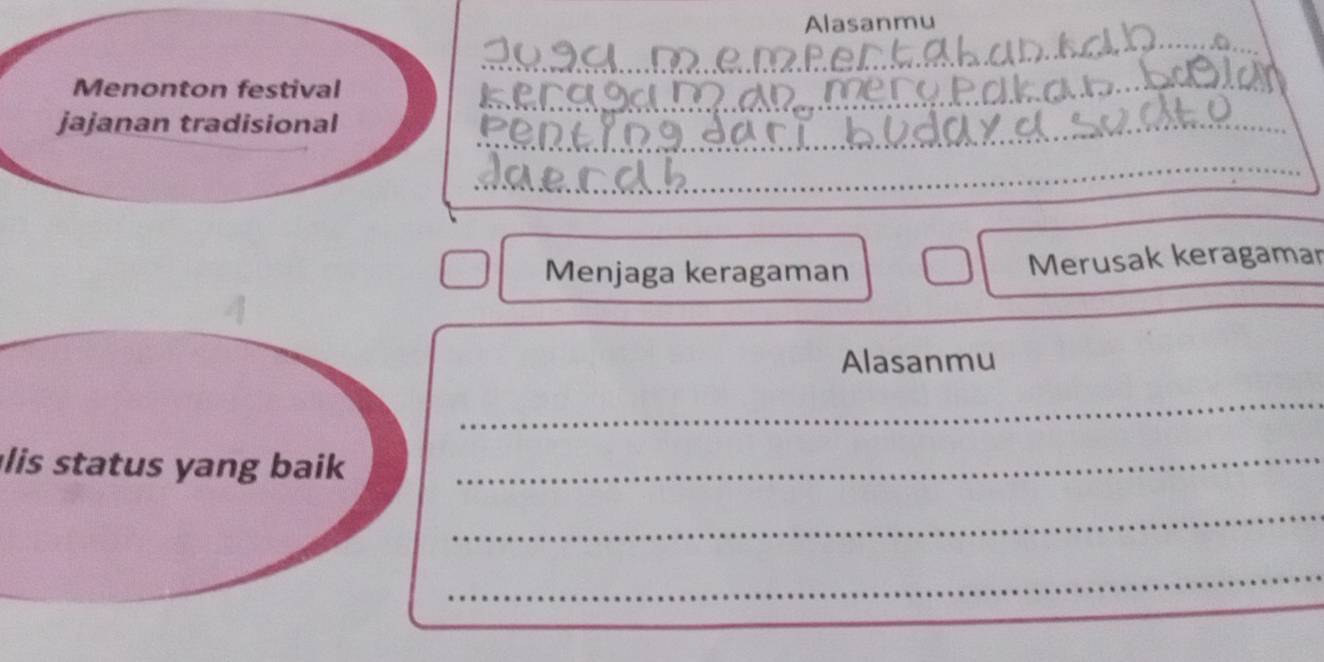 Menonton festival
jajanan tradisional
Alasanmu
Juga mempertahankan
keragaman merupakan bagian
penting dari budaya suatu
daerah
Menjaga keragaman
Merusak keragaman
lis status yang baik
Alasanmu